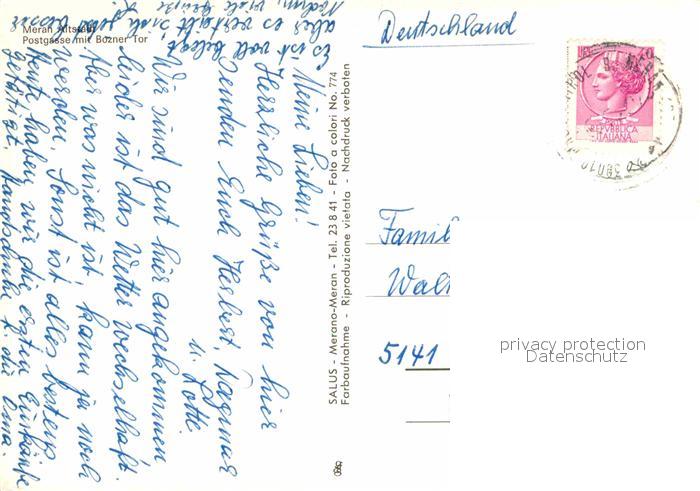 Meran Altstadt
Postgasse mit Bozner Tor
Meine Lieben!
Herzliche Grüße von hier
senden Euch Herbert, Dagmar
u. Lotte.
Wir sind gut hier angekommen
leider ist das Wetter wechselhaft.
Aber was nicht ist kann ja noch
werden. Sonst ist alles bestens
Heute haben wir die ersten Einkäufe
getätigt. Handschuhe f. die Oma.
Es ist voll belegt
aber es verteilt sich
SALUS - Merano-Meran - Tel. 23 8 41 - Foto a colori No. 774
Farbaufnahme - Riproduzione vietata - Nachdruck verboten
Deutschland
REPVBBLICA
ITALIANA
Famil
Wal
5141
privacy protection
Datenschutz